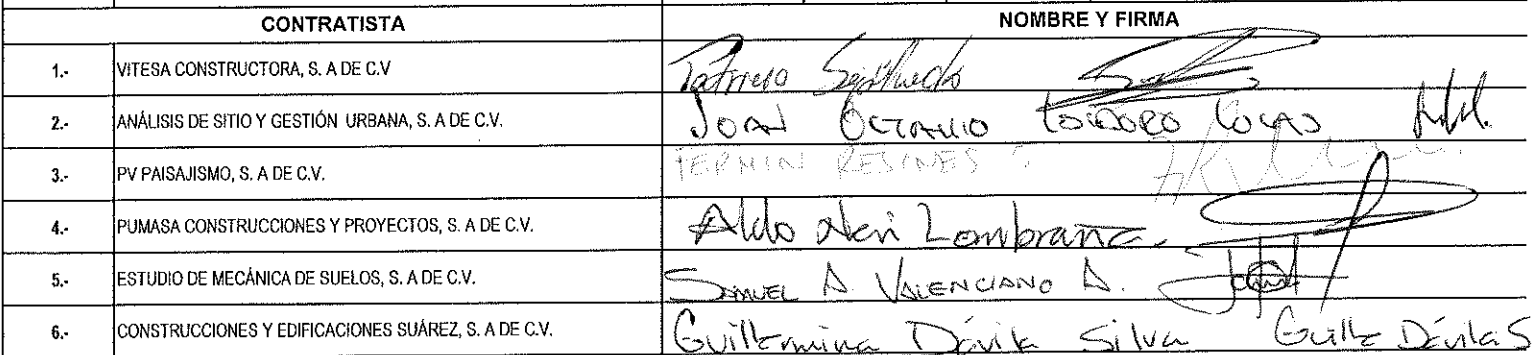 CONTRATISTA NOMBRE Y FIRMA
1.- VITESA CONSTRUCTORA, S. A DE C.V Patricio Sepúlveda
2.- ANÁLISIS DE SITIO Y GESTIÓN URBANA, S. A DE C.V. JOAN OCTAVIO
3.- PV PAISAJISMO, S. A DE C.V. FERMIN RESINES
4.- PUMASA CONSTRUCCIONES Y PROYECTOS, S. A DE C.V. Aldo Neri Lombraña
5.- ESTUDIO DE MECÁNICA DE SUELOS, S. A DE C.V. SAMUEL A. VALENCIANO A.
6.- CONSTRUCCIONES Y EDIFICACIONES SUÁREZ, S. A DE C.V. Guillermina Dávila Silva Guille Dávila S